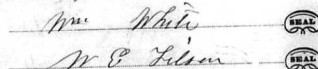 Wm White SEAL
W E Filson SEAL